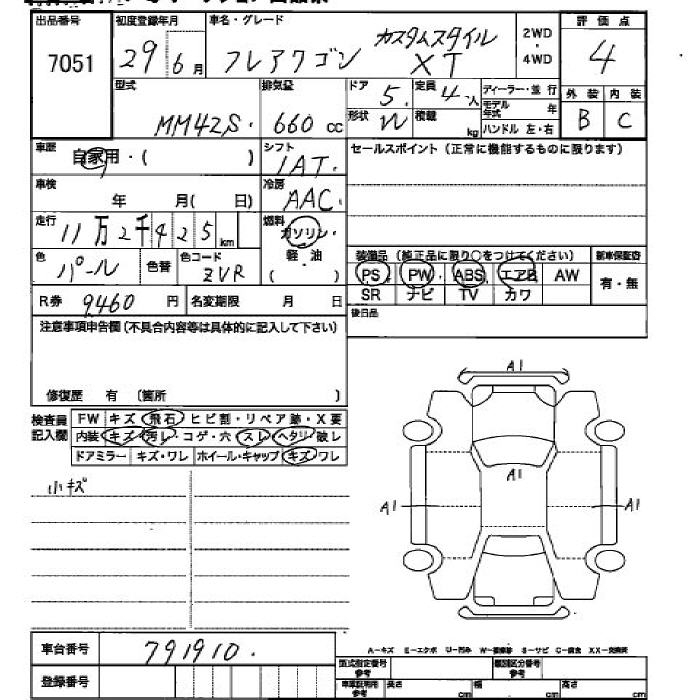 出品番号 初度登録年月 車名・グレード 2WD・4WD 評価点
7051 29年6月 フレアワゴン カスタムスタイル XT 4
型式 排気量 ドア 定員 ディーラー・並行 外装 内装
MM42S. 660cc 5. 4人 モデル年式 年 B C
形状 W 積載 kg ハンドル 左・右
車歴 自家用・( ) シフト 1AT. セールスポイント(正常に機能するものに限ります)
車検 年 月( 日) 冷房 AAC.
走行 11万2千425km 燃料 ガソリン・軽・油 ( )
色 パール 色替 色コード ZVR 装備品(純正品に限り○をつけてください) 新車保証書
PS PW ABS エアB AW 有・無
SR ナビ TV カワ
R券 9460円 名変期限 月 日 後日品
注意事項申告欄(不具合内容等は具体的に記入して下さい)
修復歴 有 (箇所 )
検査員記入欄 FW キズ・飛石・ヒビ割・リペア跡・X要
内装 キズ・汚レ・コゲ・穴・スレ・ヘタリ・破レ
ドアミラー キズ・ワレ ホイール・キャップ キズ・ワレ
小キズ
A1
A1
A1 A1
車台番号 791910.
A-キズ E-エクボ U-凹み W-補修跡 S-サビ C-腐食 XX-交換済
型式指定番号 参考 類別区分番号 参考
登録番号 車庫証明用 参考 長さ cm 幅 cm 高さ cm